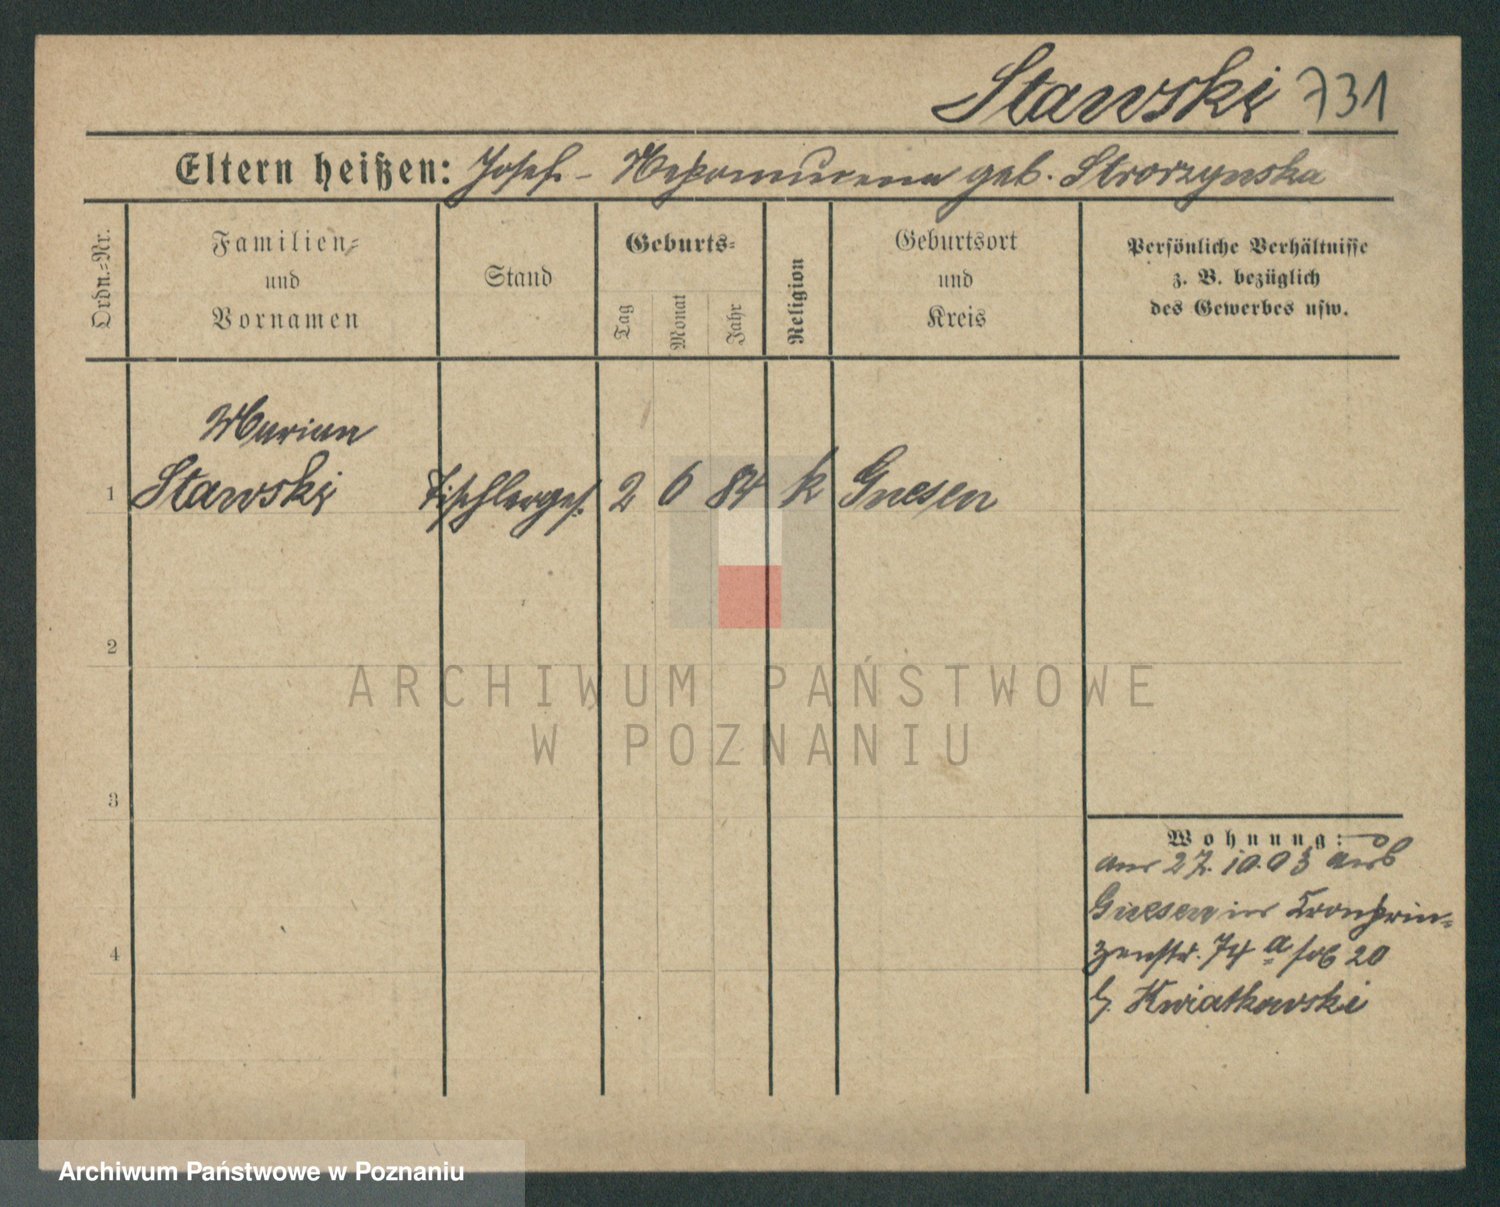 Stawski 731
Eltern heißen: Josef - Nepomucena geb. Strorzynska
Ordn.=Nr.
Familien=
und
Vornamen
Stand
Geburts=
Tag
Monat
Jahr
Religion
Geburtsort
und
Kreis
Persönliche Verhältnisse
z. B. bezüglich
des Gewerbes usw.
Marian
1 Stawski Tischlerges. 2 6 84 k Gnesen
2
3
4
Wohnung:
27.10.03 aus
Gnesen in Kronprin=
zenstr. 74 a 20
b. Kwiatkowski
ARCHIWUM PAŃSTWOWE
W POZNANIU
Archiwum Państwowe w Poznaniu